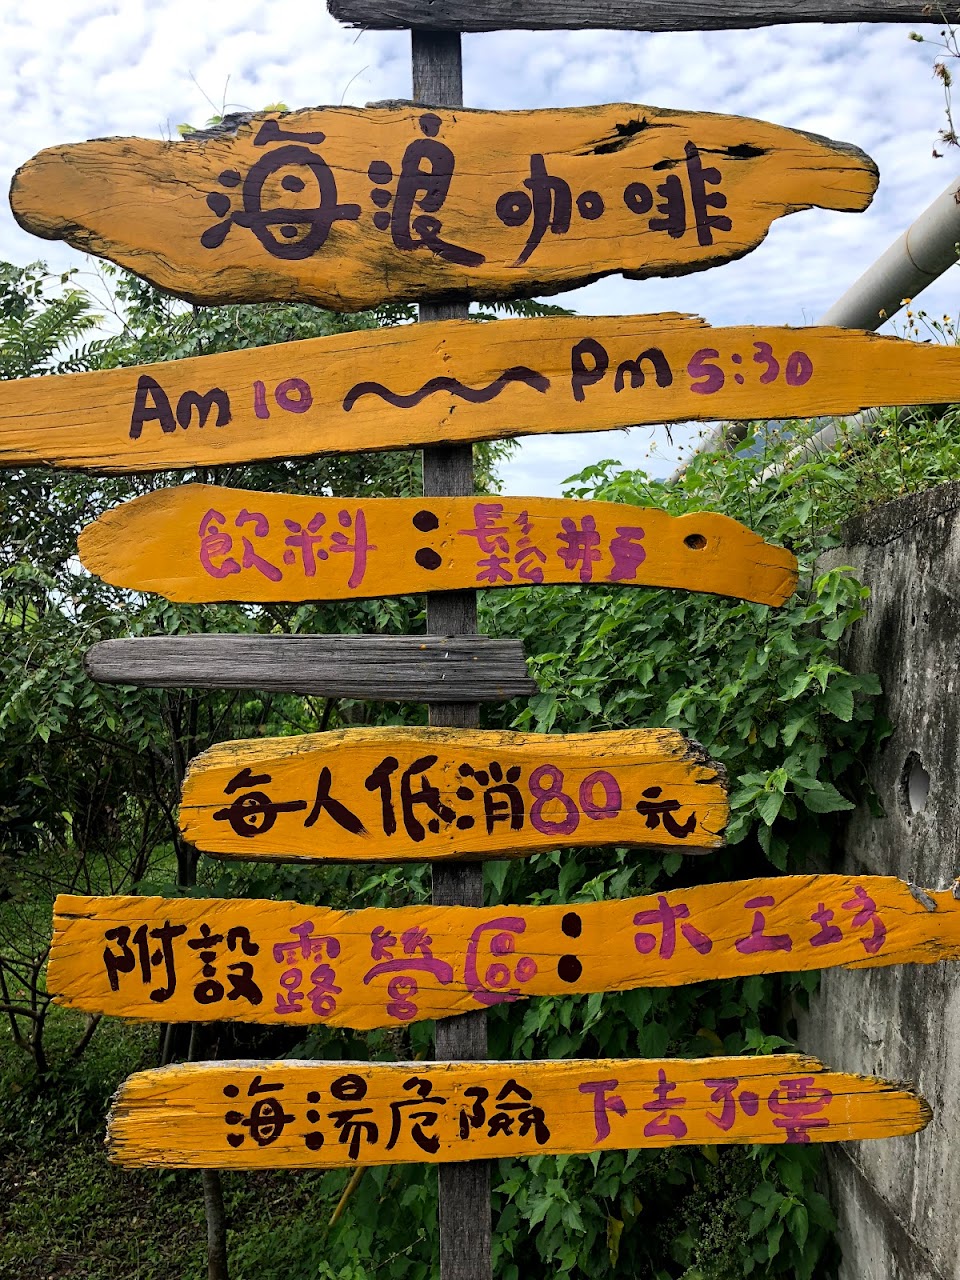 海浪咖啡
Am 10 ～ Pm 5:30
飲料：鬆餅
每人低消80元
附設露營區：木工坊
海湯危險下去不要